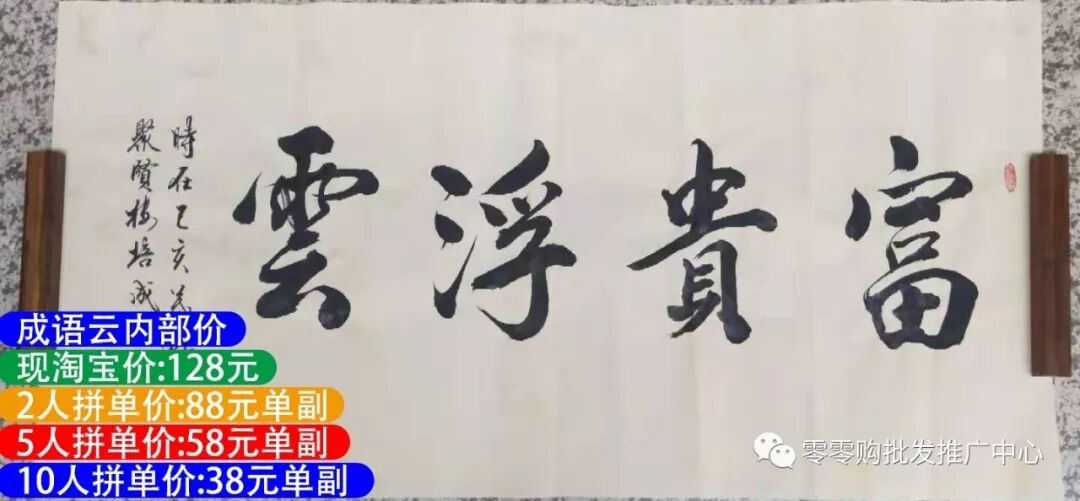 富貴浮雲
時在己亥
聚賢樓培成
成语云内部价
现淘宝价:128元
2人拼单价:88元单副
5人拼单价:58元单副
10人拼单价:38元单副
零零购批发推广中心